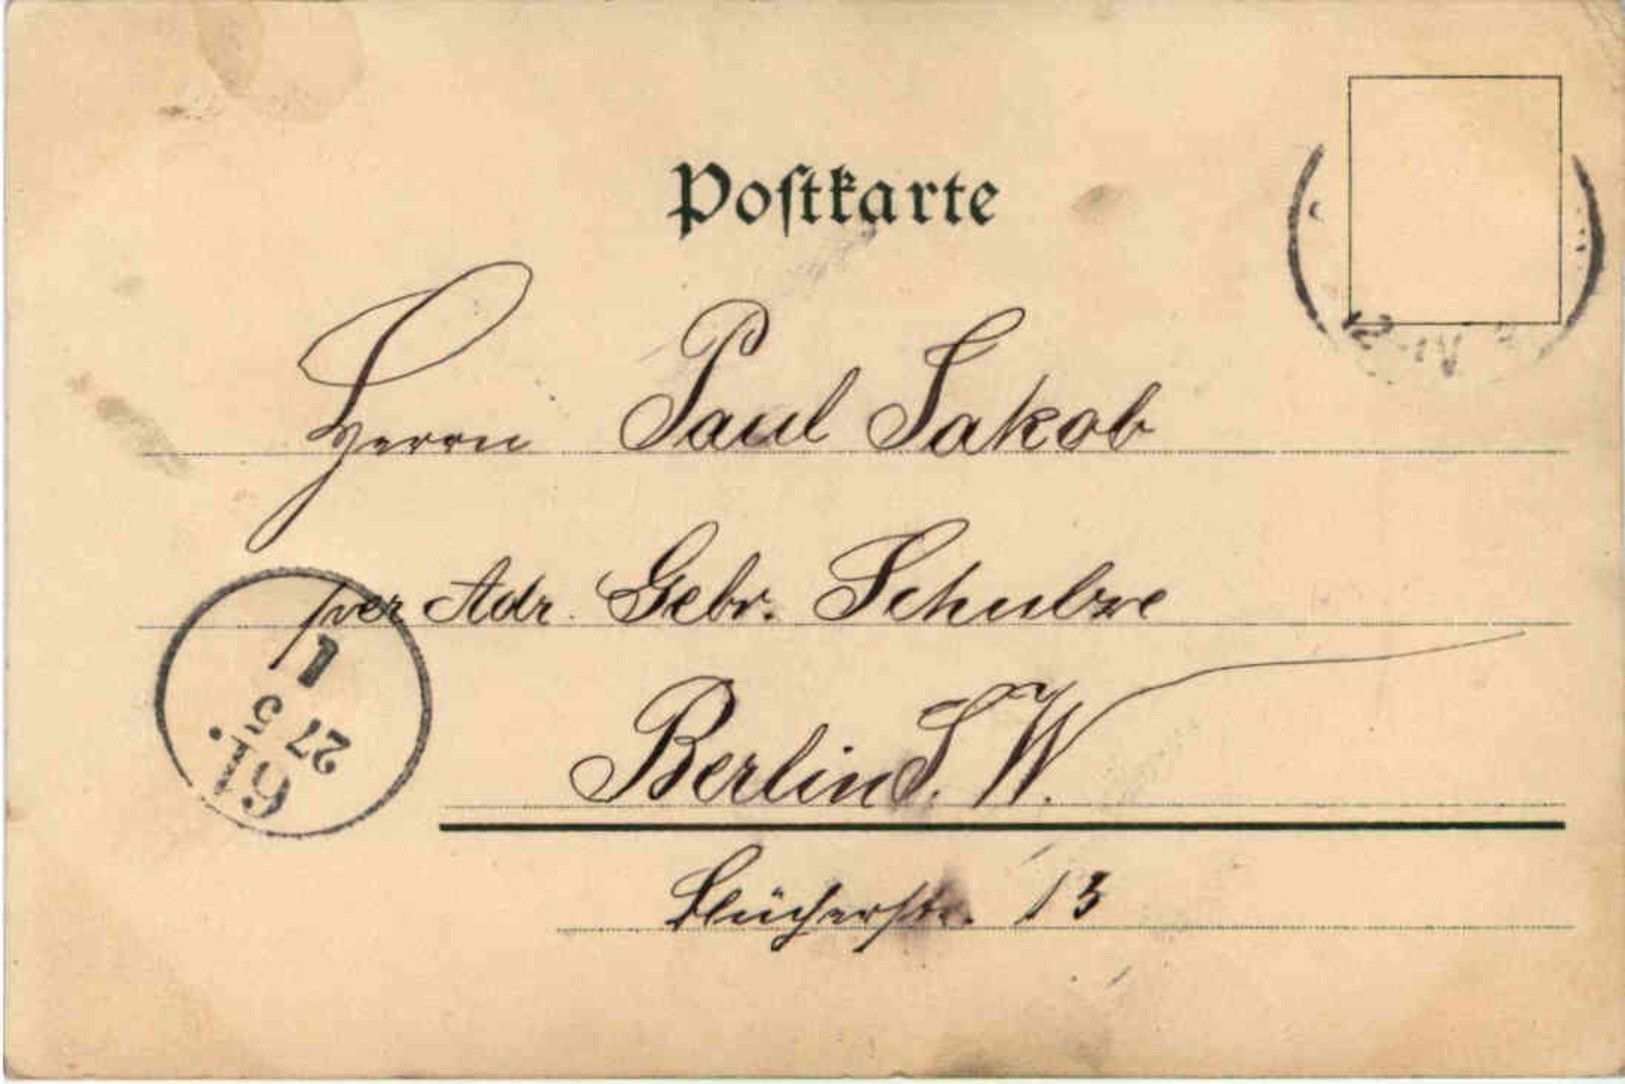 Postkarte
Herrn Paul Jakob
per Adr. Gebr. Schulze
Berlin S. W.
Blücherstr. 13
1
27 5
61.